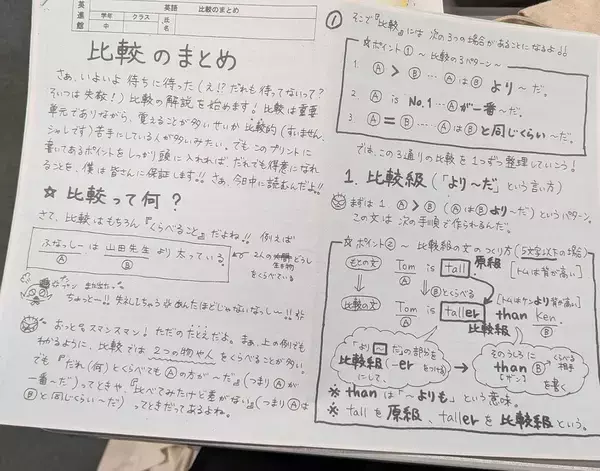 英進館
英語 比較のまとめ
学年
中
クラス
氏名
比較のまとめ
さあ、いよいよ待ちに待った(え!?だれも待ってないって?
そいつは失敬!)比較の解説を始めます!比較は重要
単元でありながら、覚えることが多いせいか比較的(すいません、
シャレです)苦手にしている人が多いみたい。でもこのプリントに
書いてあるポイントをしっかり頭に入れれば、だれでも得意になれ
ることを、僕は皆さんに保証します!!さぁ、今日中に読むんだよ!!
☆比較って何?
さて、比較はもちろん『くらべること』だよね!!例えば
ふなっしーは山田先生より太っている。
Ⓐ Ⓑ
2人の
どうし
生き物
をくらべている
ちょっとー!!失礼しちゃう
あんたほどじゃないなっしー!!
おっと。スマンスマン!ただのたとえだよ。まぁ、上の例でも
わかるように、比較では2つの物や人をくらべることが多い。
でも『だれ(何)とくらべてもⒶの方が〜だ』(つまりⒶが
一番〜だ)ってときや、『比べてみたけど差がない』(つまりⒶは
Ⓑと同じくらい〜だ)ってときだってあるよね。
①
そこで『比較』には次の3つの場合があることになるよ!!
☆ポイント①〜比較の3パターン〜
1. Ⓐ>Ⓑ…Ⓐはより〜だ。
2. Ⓐ is No.1…Ⓐが一番〜だ。
3. Ⓐ=Ⓑ…ⒶはⒷと同じくらい〜だ。
では、この3通りの比較を1つずつ整理していこう!
1. 比較級(「より〜だ」という言い方)
まずは1 Ⓐ>Ⓑ(ⒶはⒷより〜だ)というパターン。
この文は次の手順で作られるんだ。
☆ポイント②〜比較級の文のつくり方(5文字以下の場合)
もとの文
Tom is tall. 原級
[トムは背が高い]
Ⓑとくらべる
[トムはケンより背が高い]
比較の文
Tom is taller than Ken.
Ⓐ 比較級 Ⓑ
「より〜だ」の部分を
比較級(-erをつける)
にして、
そのうしろに
than Ⓑ
[ザン]
くらべる
相手
を書く
※ thanは「〜よりも」という意味。
※ tallを原級、tallerを比較級という。